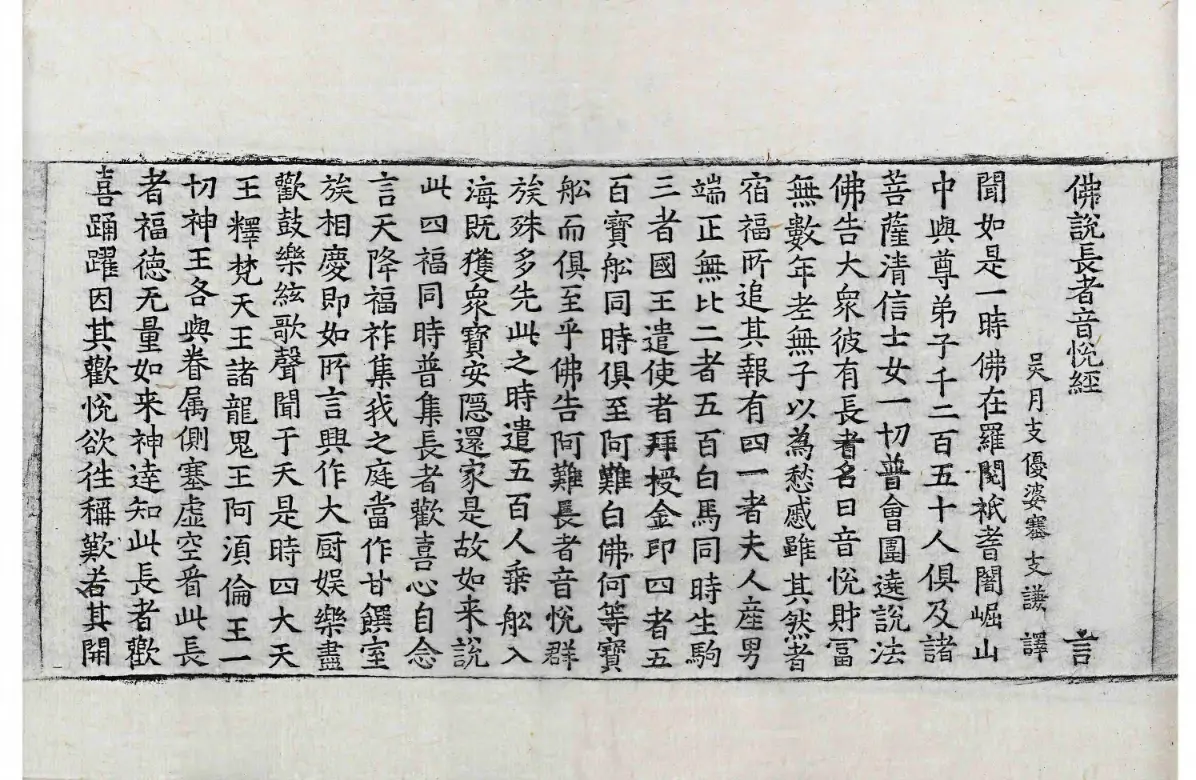 佛說長者音悅經 言
吳月支優婆塞支謙 譯
聞如是一時佛在羅閱祇耆闍崛山
中與尊弟子千二百五十人俱及諸
菩薩清信士女一切普會圍遶說法
佛告大衆彼有長者名曰音悅財冨
無數年老無子以為愁慼雖其然者
宿福所追其報有四一者夫人産男
端正無比二者五百白馬同時生駒
三者國王遣使者拜授金印四者五
百寶舩同時俱至阿難白佛何等寶
舩而俱至乎佛告阿難長者音悅群
族殊多先此之時遣五百人乗舩入
海既獲衆寶安隠還家是故如来說
此四福同時普集長者歡喜心自念
言天降福祚集我之庭當作甘饌室
族相慶即如所言興作大厨娱樂盡
歡鼓樂絃歌聲聞于天是時四大天
王釋梵天王諸龍鬼王阿湏倫王一
切神王各與眷属側塞虚空看此長
者福徳无量如来神逹知此長者歡
喜踊躍因其歡悅欲往稱歎若其開